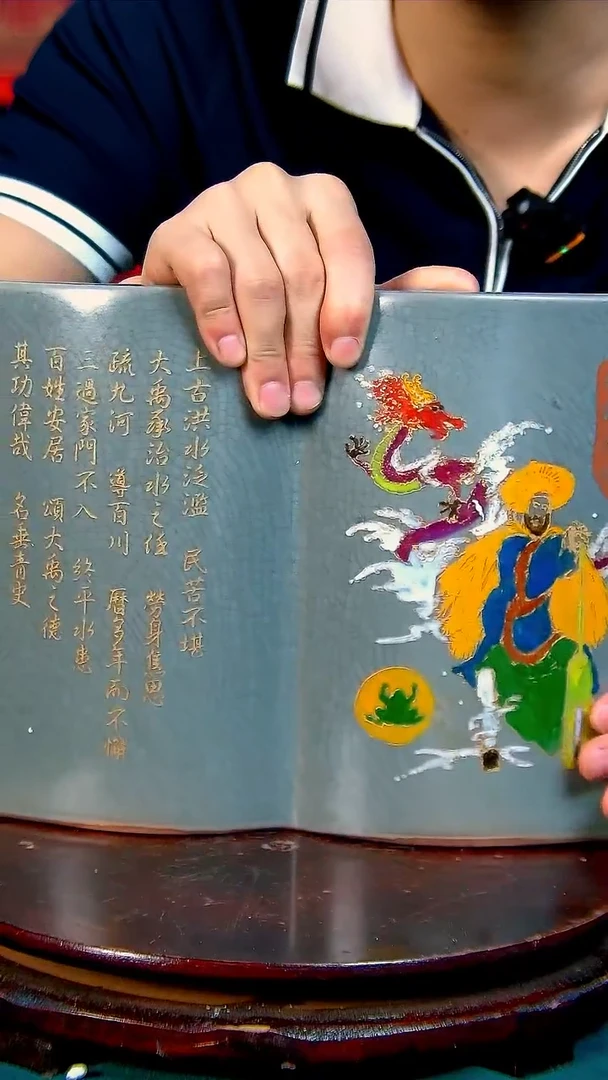 上古洪水泛滥 民苦不堪
大禹承治水之任 勞身焦思
疏九河 導百川 曆多年而不懈
三過家門不入 終平水患
百姓安居 頌大禹之德
其功偉哉 名垂青史